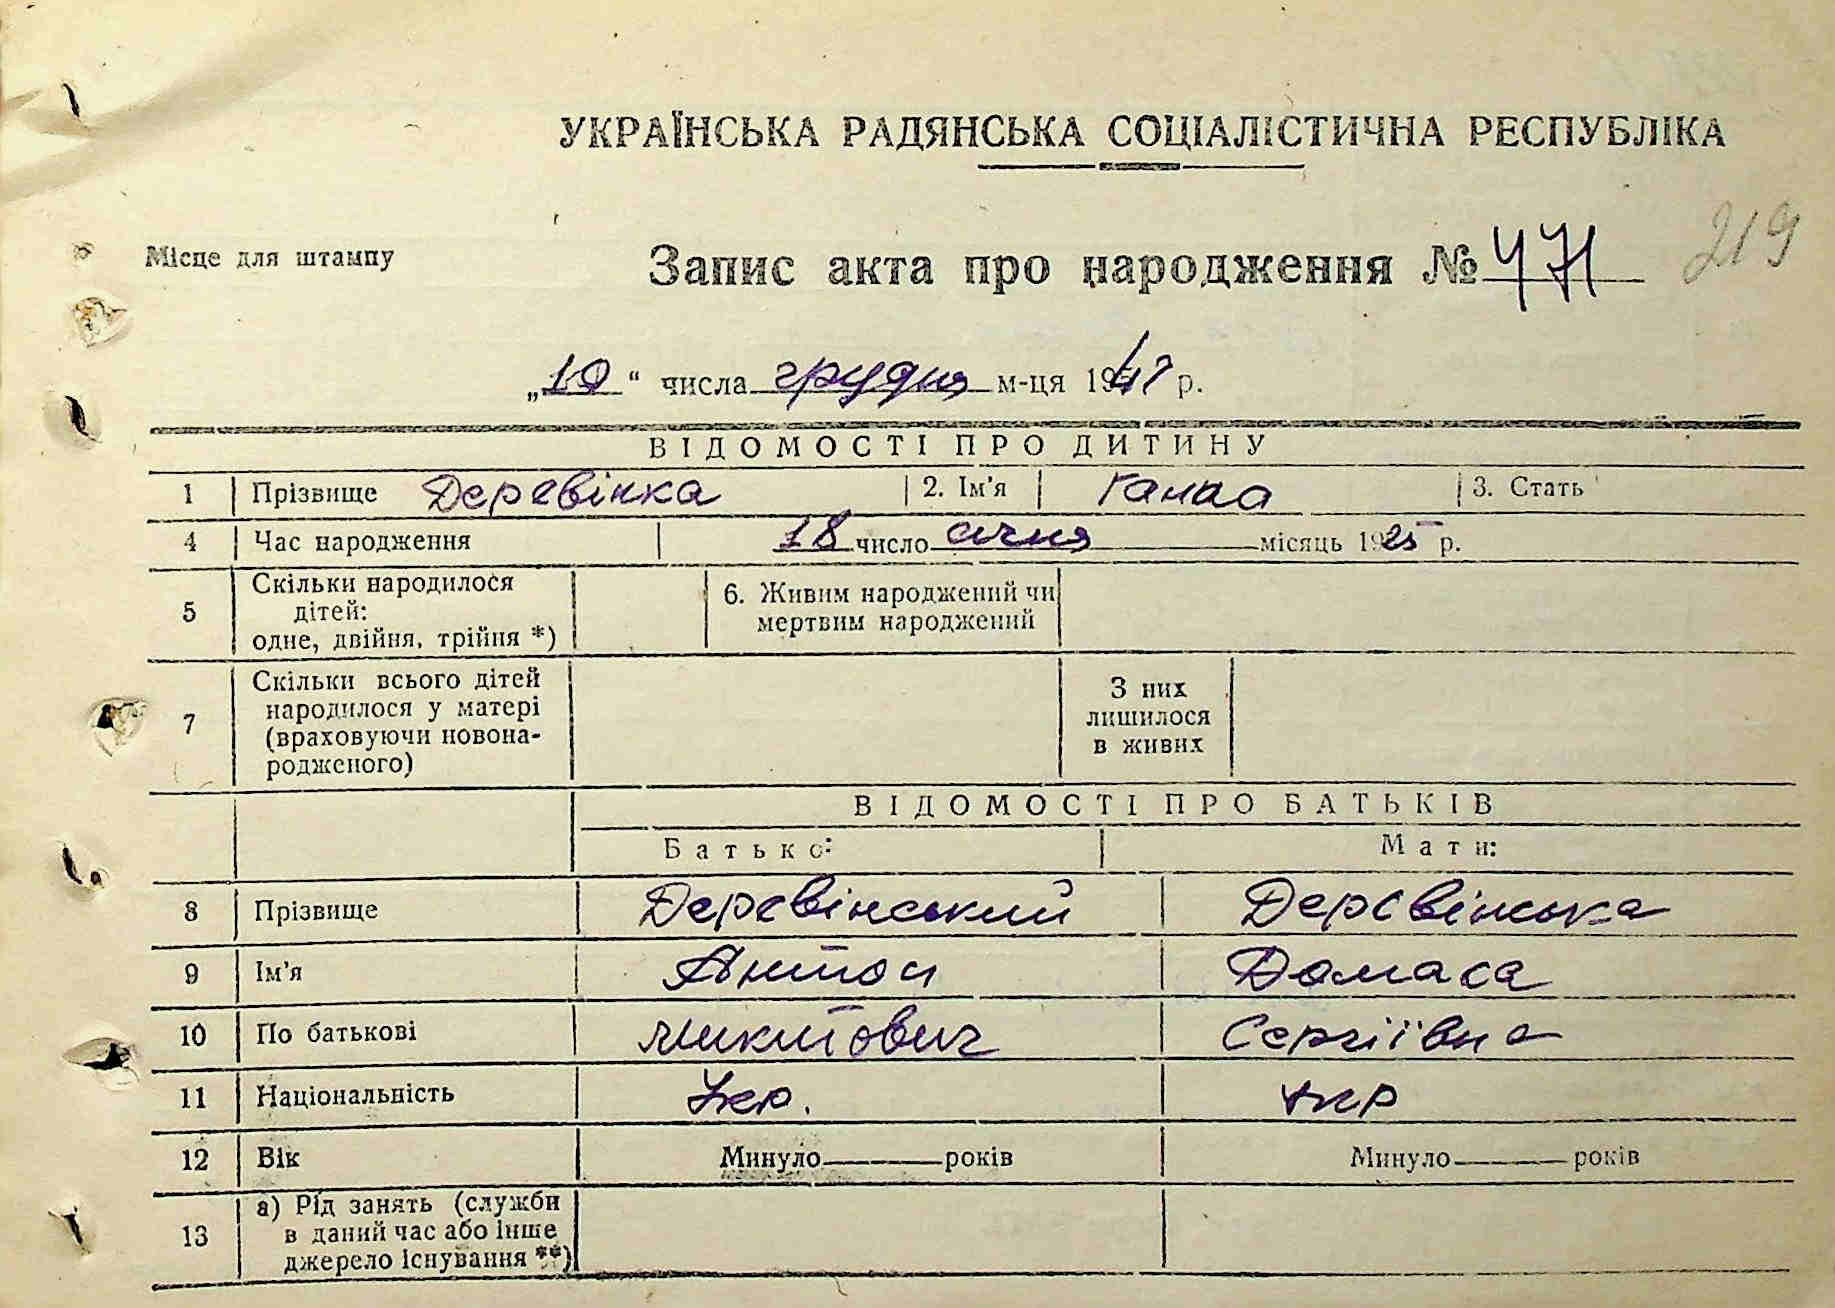 УКРАЇНСЬКА РАДЯНСЬКА СОЦІАЛІСТИЧНА РЕСПУБЛІКА
219
Місце для штампу
Запис акта про народження № 471
„10“ числа грудня м-ця 1947 р.
ВІДОМОСТІ ПРО ДИТИНУ
1 Прізвище Деревінка 2. Ім'я Ганна 3. Стать
4 Час народження 18 число січня місяць 1925 р.
5 Скільки народилося дітей: одне, двійня, трійня *) 6. Живим народжений чи мертвим народжений
7 Скільки всього дітей народилося у матері (враховуючи новона-родженого) З них лишилося в живих
ВІДОМОСТІ ПРО БАТЬКІВ
Батько: Мати:
8 Прізвище Деревінський Деревінська
9 Ім'я Антон Домаса
10 По батькові Микитович Сергіївна
11 Національність Укр. укр
12 Вік Минуло років Минуло років
13 а) Рід занять (служби в даний час або інше джерело існування **)